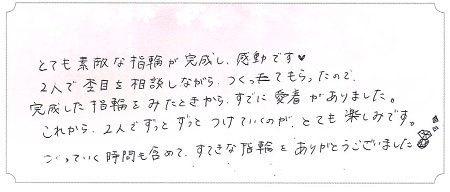 とても素敵な指輪が完成し、感動です♥
2人で杢目を相談しながら、つくってもらったので、
完成した指輪をみたときから、すでに愛着がありました。
これから、2人でずっとずっとつけていくのが、とても楽しみです。
つくっていく時間も含めて、すてきな指輪をありがとうございました